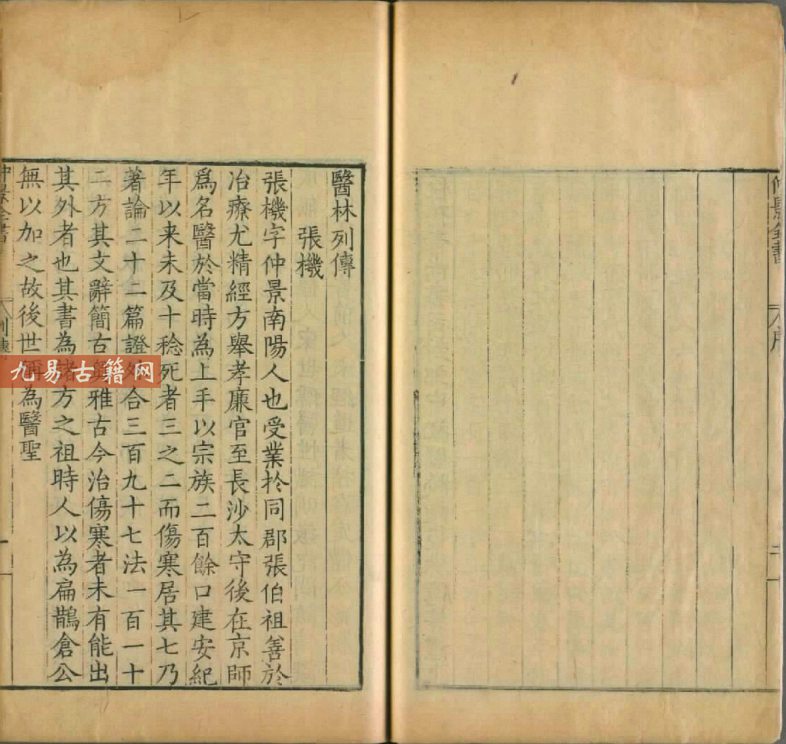 醫林列傳
張機
張機字仲景南陽人也受業於同郡張伯祖善於
治療尤精經方舉孝廉官至長沙太守後在京師
爲名醫於當時為上手以宗族二百餘口建安紀
年以来未及十稔死者三之二而傷寒居其七乃
著論二十二篇證外合三百九十七法一百一十
二方其文辭簡古奧雅古今治傷寒者未有能出
其外者也其書為諸方之祖時人以為扁鵲倉公
無以加之故後世稱為醫聖
九易古籍网